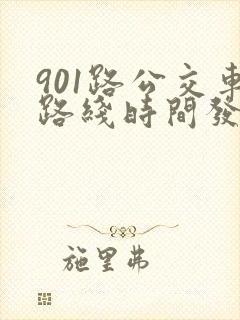 901路公交車
路綫時間發
施里弗